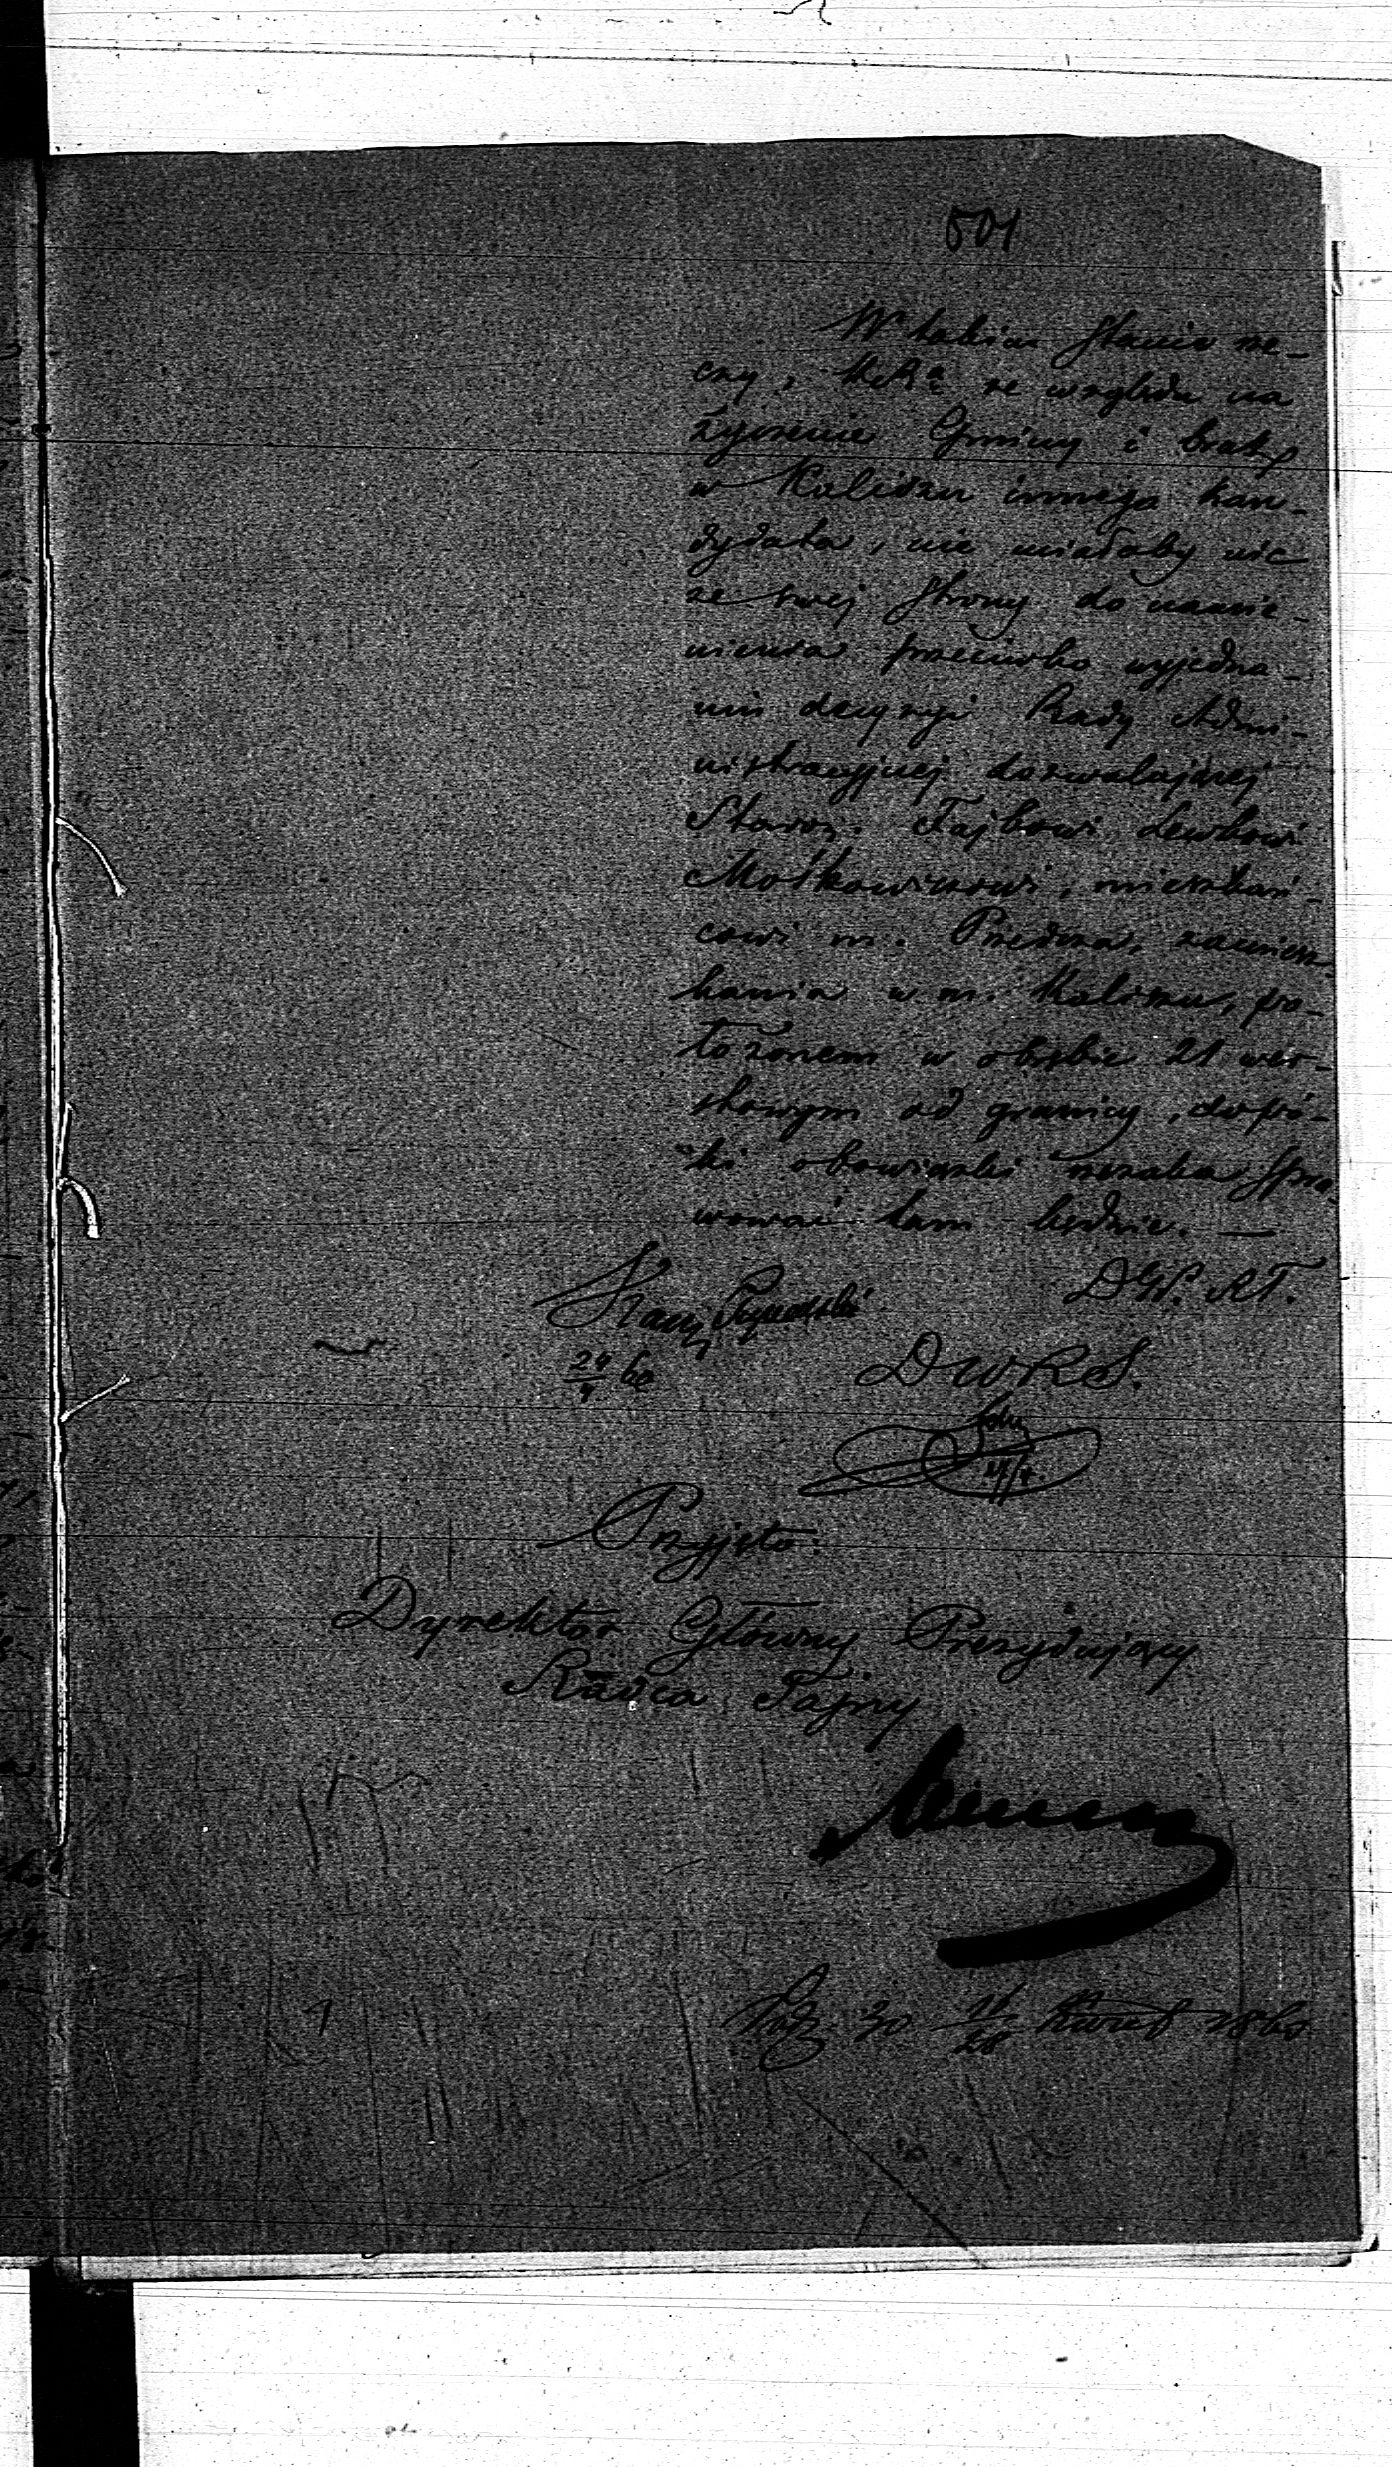 501
W takim stanie rze-
czy, KRŚ ze względu na
życzenie Gminy i brak
w Kaliszu innego kan-
dydata, nie miałaby nic
ze swej strony do nadmie-
nienia przeciwko wyjedna-
niu decyzyi Rady Admi-
nistracyjnej dozwalającej
Staroz. Fajbowi Lewkowi
Mośkowiczowi, mieszkań-
cowi m. Przedcza, zamiesz-
kania w m. Kaliszu, po-
łożonem w obrębie 21 wior-
stowym od granicy, dopó-
ki obowiązki rzezaka spra-
wować tam będzie. —
DGP. RT.
24/4 60
DWRS.
Przyjęto:
Dyrektor Główny Prezydujący
Radca Tajny
30 16/28 Kwiet 1860